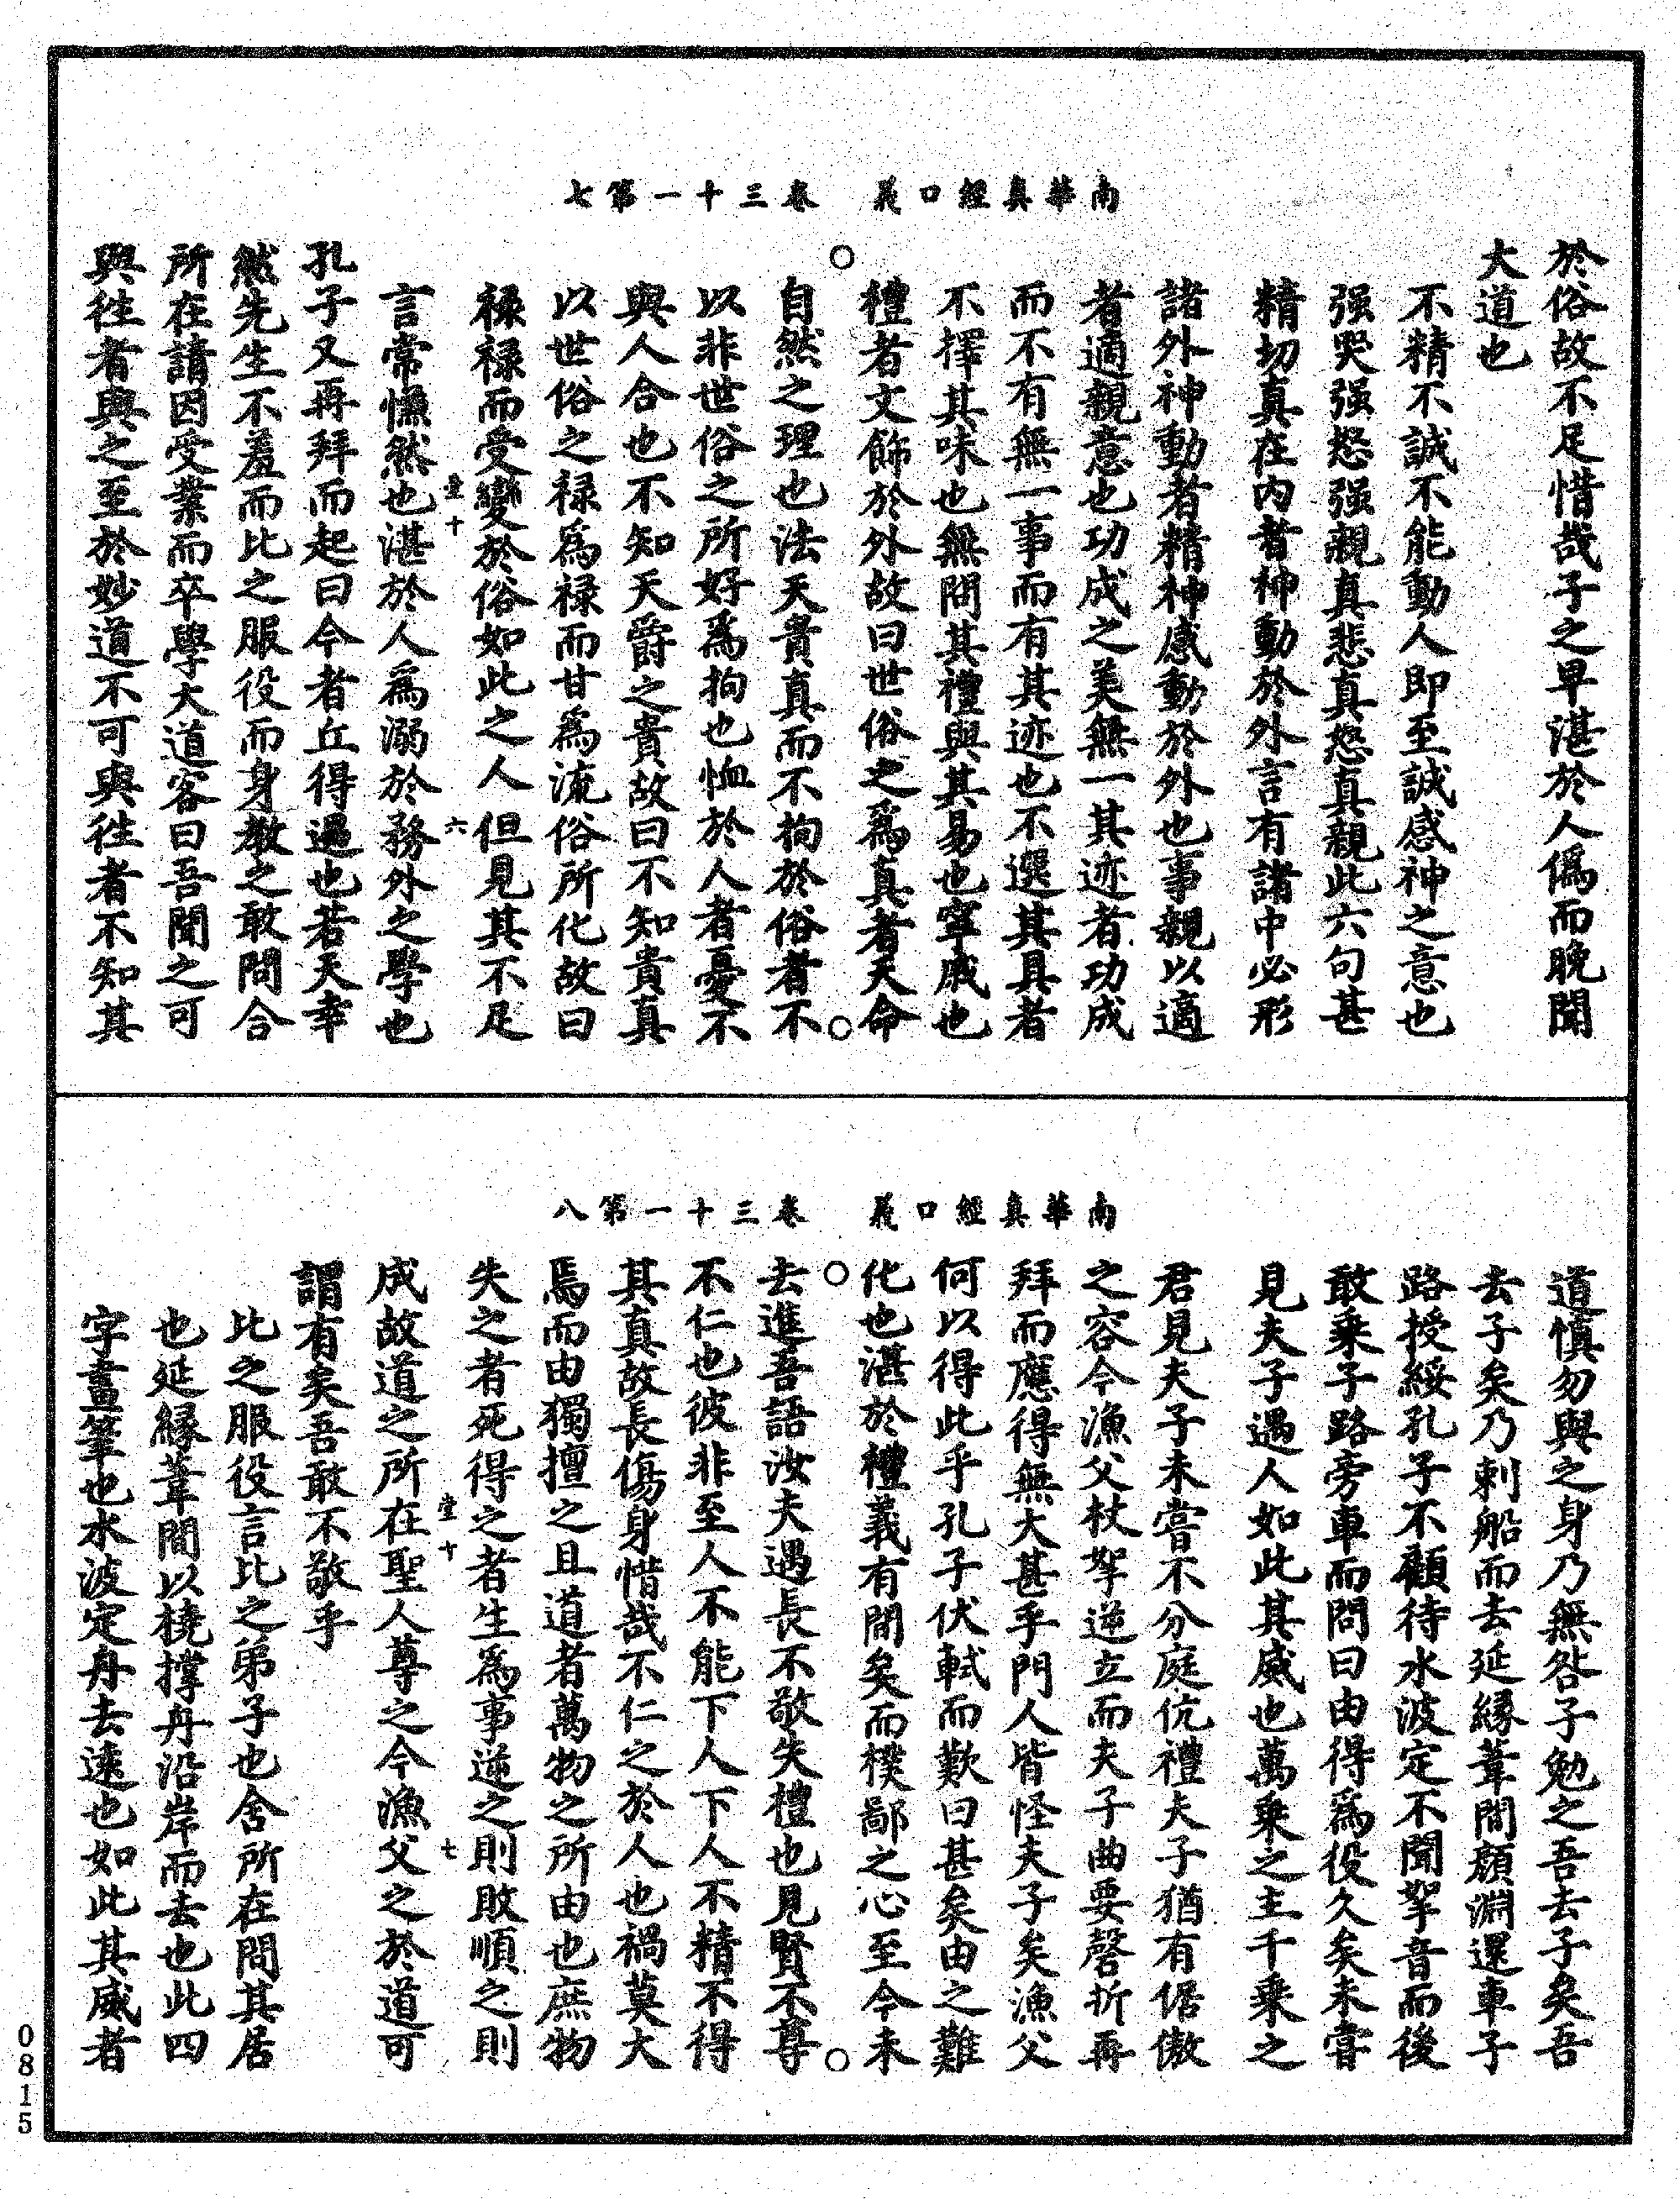 南華真經口義　卷三十一第七
於俗故不足惜哉子之早湛於人僞而晚聞
大道也
不精不誠不能動人即至誠感神之意也
强哭强怒强親真悲真怒真親此六句甚
精切真在内者神動於外言有諸中必形
諸外神動者精神感動於外也事親以適
者適親意也功成之美無一其迹者功成
而不有無一事而有其迹也不選其具者
不擇其味也無問其禮與其易也寧戚也
禮者文飾於外故曰世俗之爲真者天命
自然之理也法天貴真而不拘於俗者不
以非世俗之所好爲拘也恤於人者憂不
與人合也不知天爵之貴故曰不知貴真
以世俗之禄爲禄而甘爲流俗所化故曰
禄禄而受變於俗如此之人但見其不足
言常慊然也湛於人爲溺於務外之學也
孔子又再拜而起曰今者丘得遇也若天幸
然先生不羞而比之服役而身教之敢問舍
所在請因受業而卒學大道客曰吾聞之可
與往者與之至於妙道不可與往者不知其
十
六
南華真經口義　卷三十一第八
道慎勿與之身乃無咎子勉之吾去子矣吾
去子矣乃刺船而去延緣葦間顔淵還車子
路授綏孔子不顧待水波定不聞拏音而後
敢乘子路旁車而問曰由得爲役久矣未嘗
見夫子遇人如此其威也萬乘之主千乘之
君見夫子未嘗不分庭伉禮夫子猶有倨傲
之容今漁父杖拏逆立而夫子曲要磬折再
拜而應得無大甚乎門人皆怪夫子矣漁父
何以得此乎孔子伏軾而歎曰甚矣由之難
化也湛於禮義有間矣而樸鄙之心至今未
去進吾語汝夫遇長不敬失禮也見賢不尊
不仁也彼非至人不能下人下人不精不得
其真故長傷身惜哉不仁之於人也禍莫大
焉而由獨擅之且道者萬物之所由也庶物
失之者死得之者生爲事逆之則敗順之則
成故道之所在聖人尊之今漁父之於道可
謂有矣吾敢不敬乎
比之服役言比之弟子也舍所在問其居
也延緣葦間以橈撐舟沿岸而去也此四
字畫筆也水波定舟去遠也如此其威者
十
七
0815